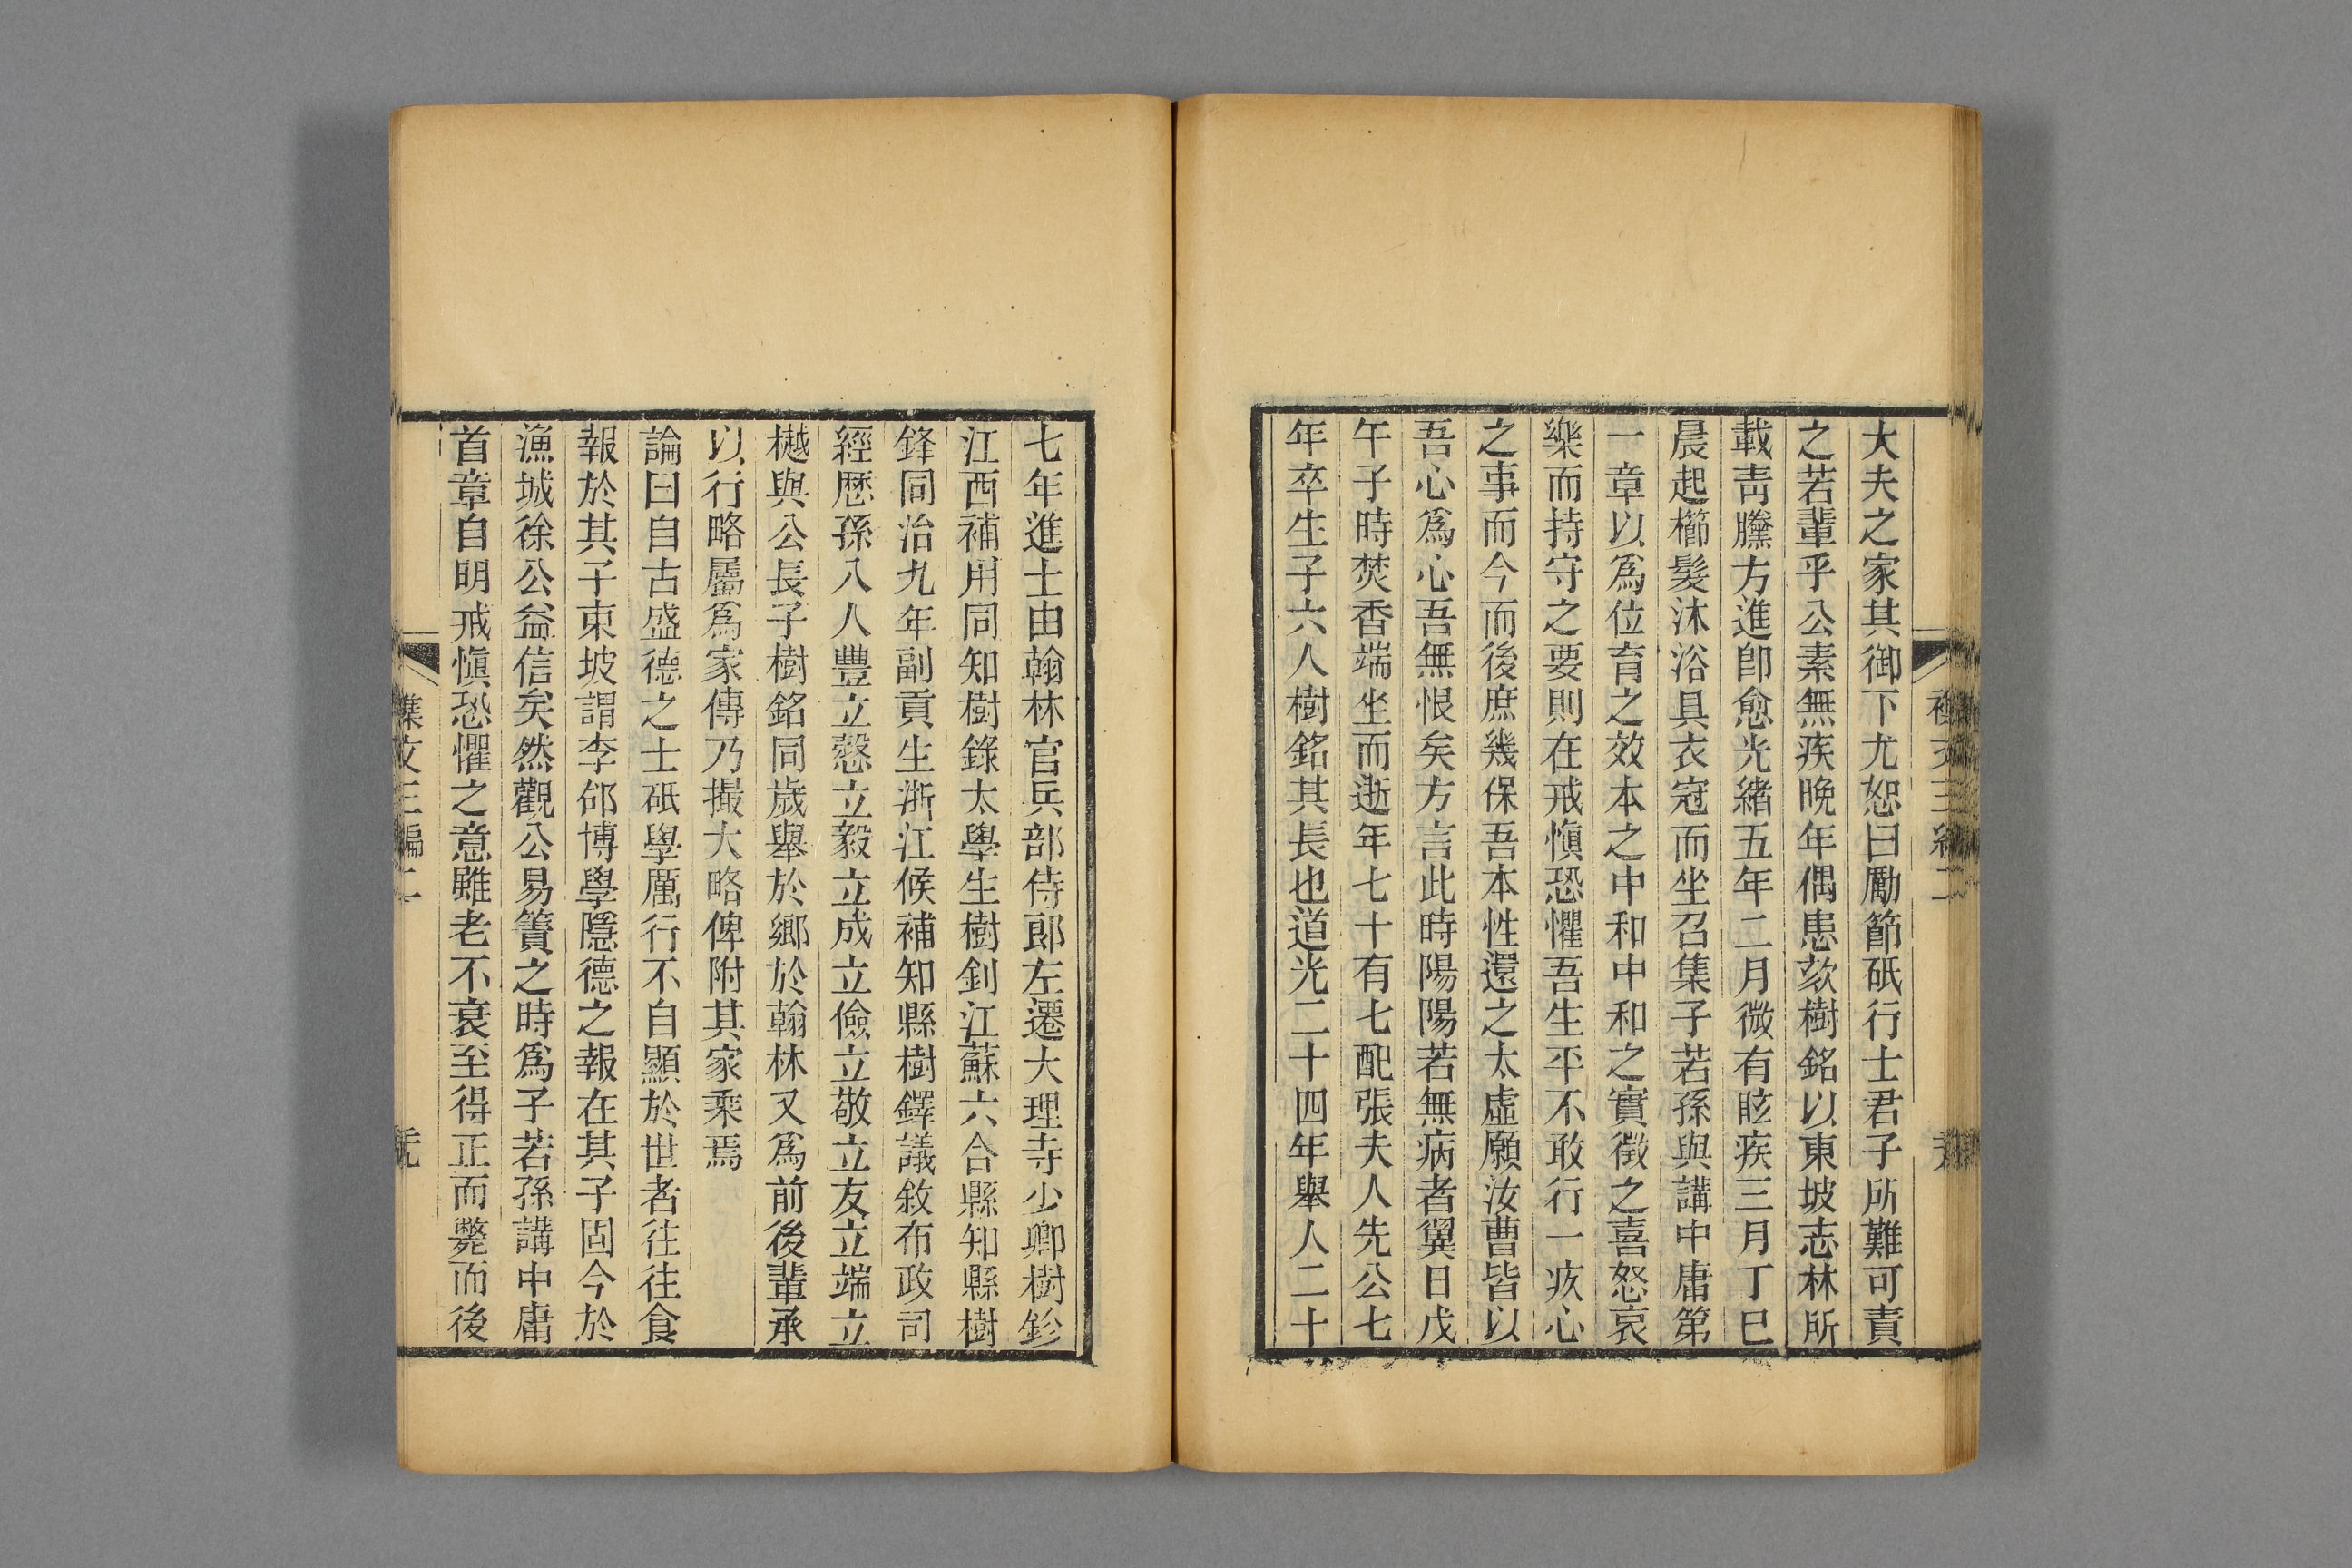 大夫之家其御下尤恕曰勵節砥行士君子所難可責
之若輩乎公素無疾晩年偶患欬樹銘以東坡志林所
載靑黱方進卽愈光緖五年二月微有眩疾三月丁巳
晨起櫛髮沐浴具衣冠而坐召集子若孫與講中庸第
一章以爲位育之效本之中和中和之實徵之喜怒哀
樂而持守之要則在戒愼恐懼吾生平不敢行一疚心
之事而今而後庶幾保吾本性還之太虛願汝曹皆以
吾心爲心吾無恨矣方言此時陽陽若無病者翼日戊
午子時焚香端坐而逝年七十有七配張夫人先公七
年卒生子六人樹銘其長也道光二十四年舉人二十
七年進士由翰林官兵部侍郞左遷大理寺少卿樹鉁
江西補用同知樹錄太學生樹釗江蘇六合縣知縣樹
鋒同治九年副貢生浙江候補知縣樹鐸議敘布政司
經歷孫八人豐立慤立毅立成立儉立敬立友立端立
樾與公長子樹銘同歲舉於鄉於翰林又爲前後輩承
以行略屬爲家傳乃撮大略俾附其家乘焉
論曰自古盛德之士砥學厲行不自顯於世者往往食
報於其子東坡謂李郃博學隱德之報在其子固今於
漁城徐公益信矣然觀公易簀之時爲子若孫講中庸
首章自明戒愼恐懼之意雖老不衰至得正而斃而後